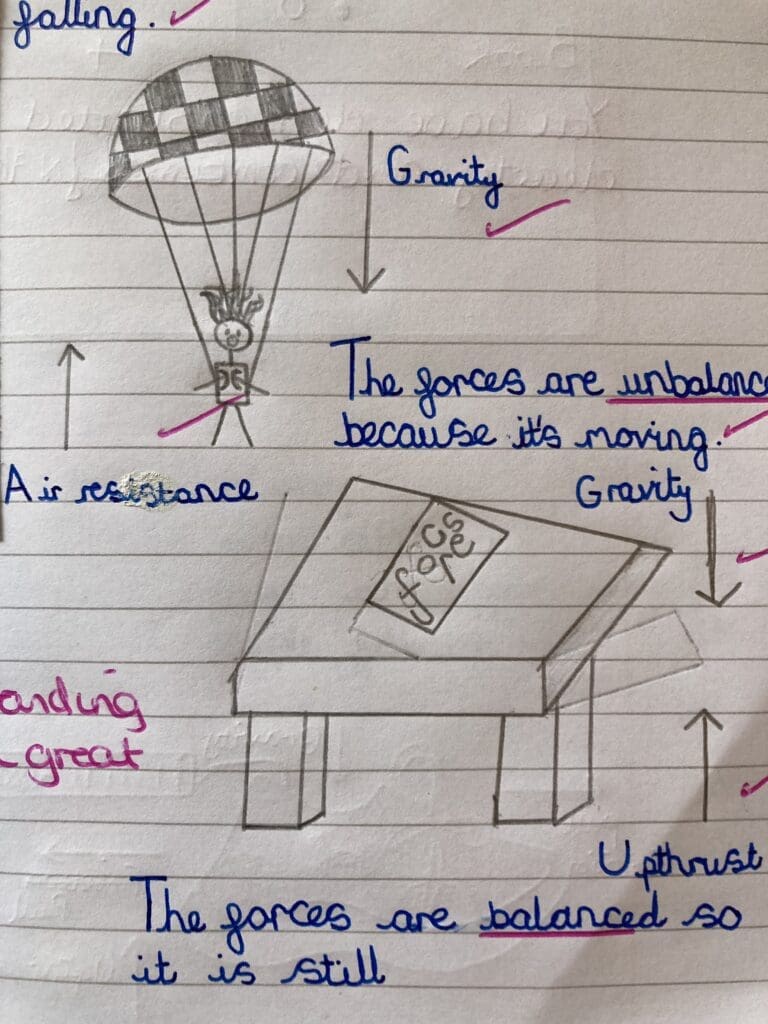 falling.
Gravity
The forces are unbalanc
because it's moving.
Air resistance
Gravity
forcs
ore
anding
great
Upthrust
The forces are balanced so
it is still